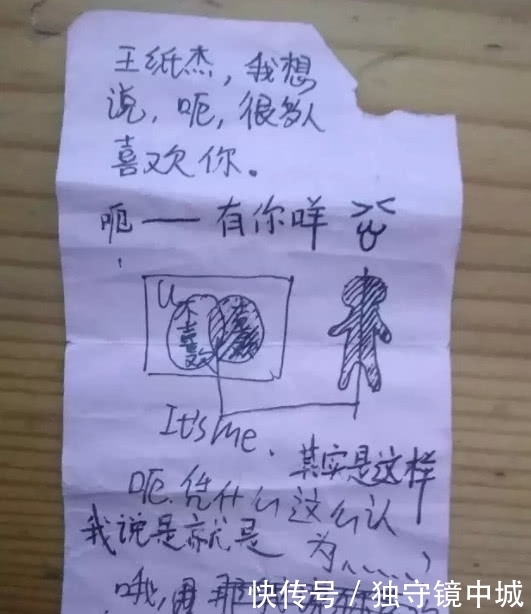 王纸杰，我想
说，呃，很多人
喜欢你。
呃——有你咩
U
不喜欢
喜欢
It's me.
其实是这样
呃，凭什么这么认
为……？
我说是就是
哦，
快传号／独守镜中城